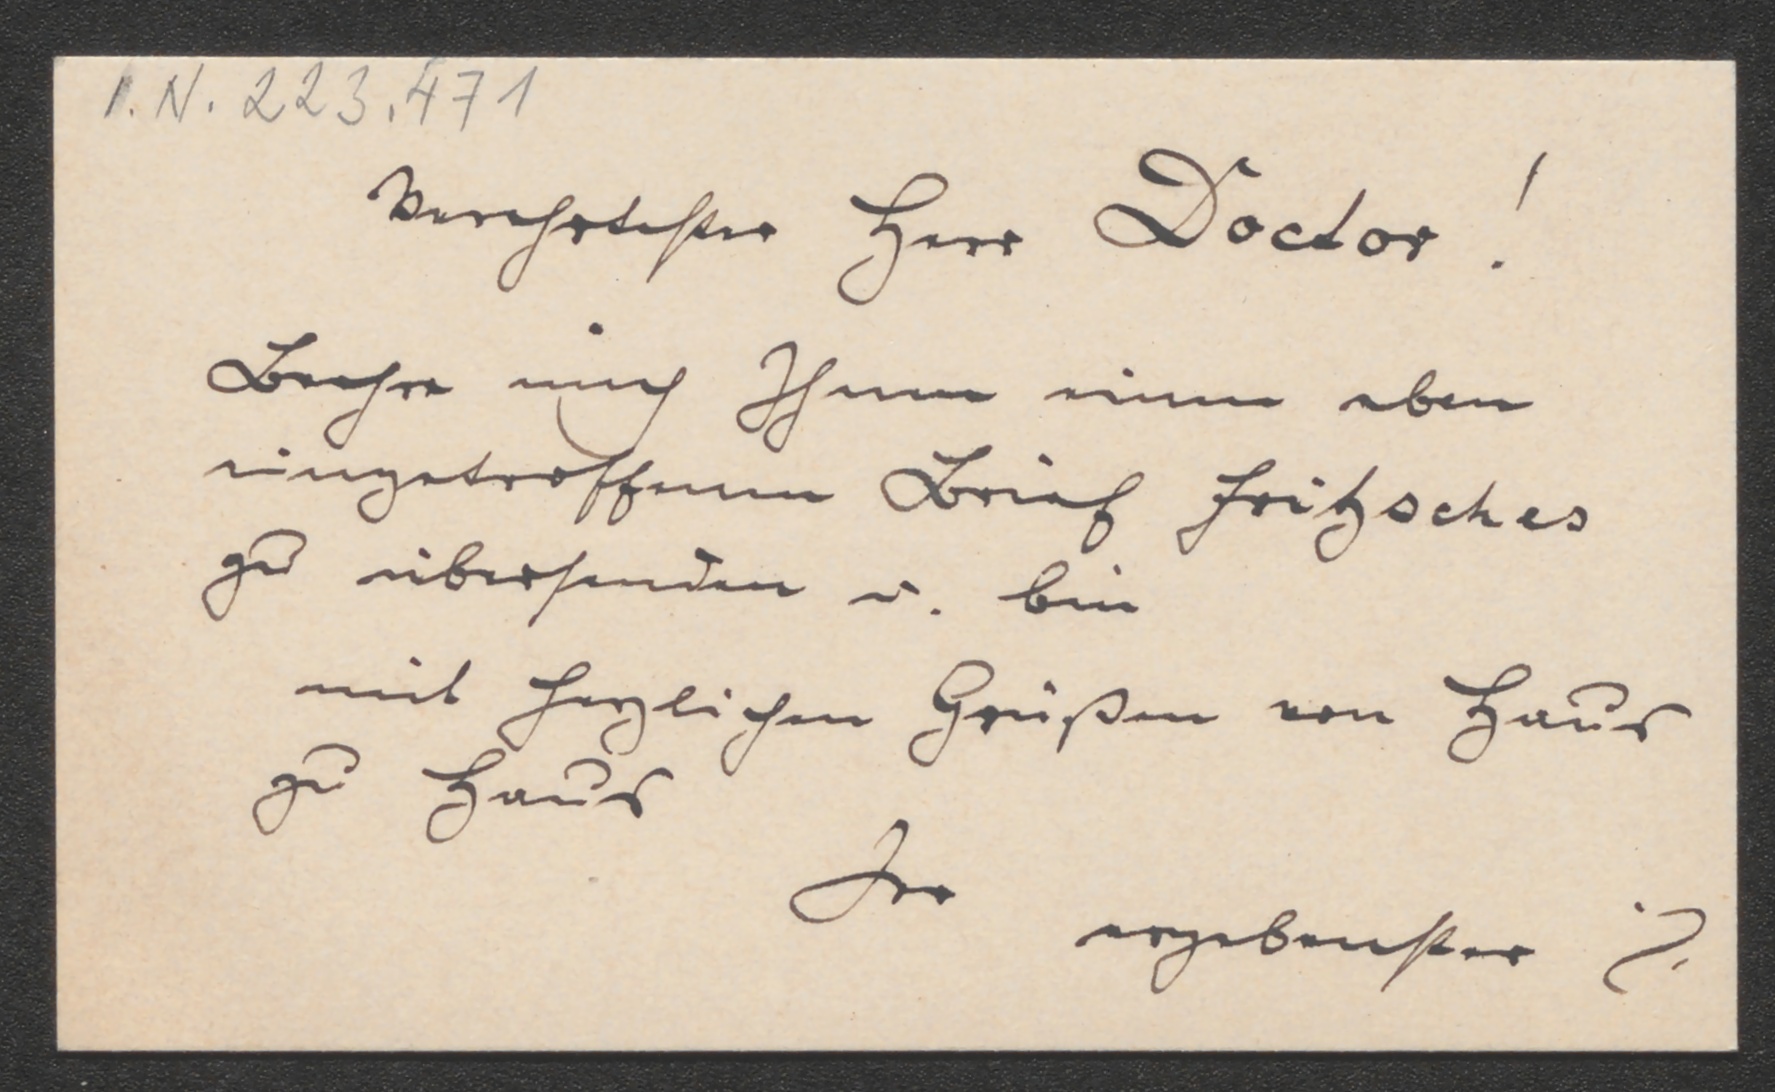 I.N. 223.471
Verehrtester Herr Doctor!
Beehre mich Ihnen einen eben
eingetroffenen Brief Fritzsches
zu übersenden u. bin
mit herzlichen Grüßen von Haus
zu Haus
Ihr
ergebenster